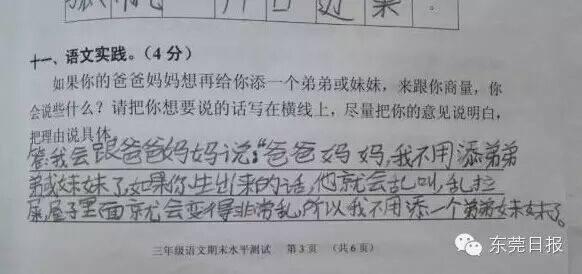 十一、语文实践。（4 分）
如果你的爸爸妈妈想再给你添一个弟弟或妹妹，来跟你商量，你
会说些什么？请把你想要说的话写在横线上，尽量把你的意见说明白，
把理由说具体
答:我会跟爸爸妈妈说:“爸爸妈妈,我不用添弟弟
弟或妹妹了,如果你生出来的话,他就会乱叫,乱拉
尿,屋子里面就会变得非常乱,所以我不用添一个弟弟妹妹了。
三年级语文期末水平测试 第 3 页 （共 6 页）
东莞日报